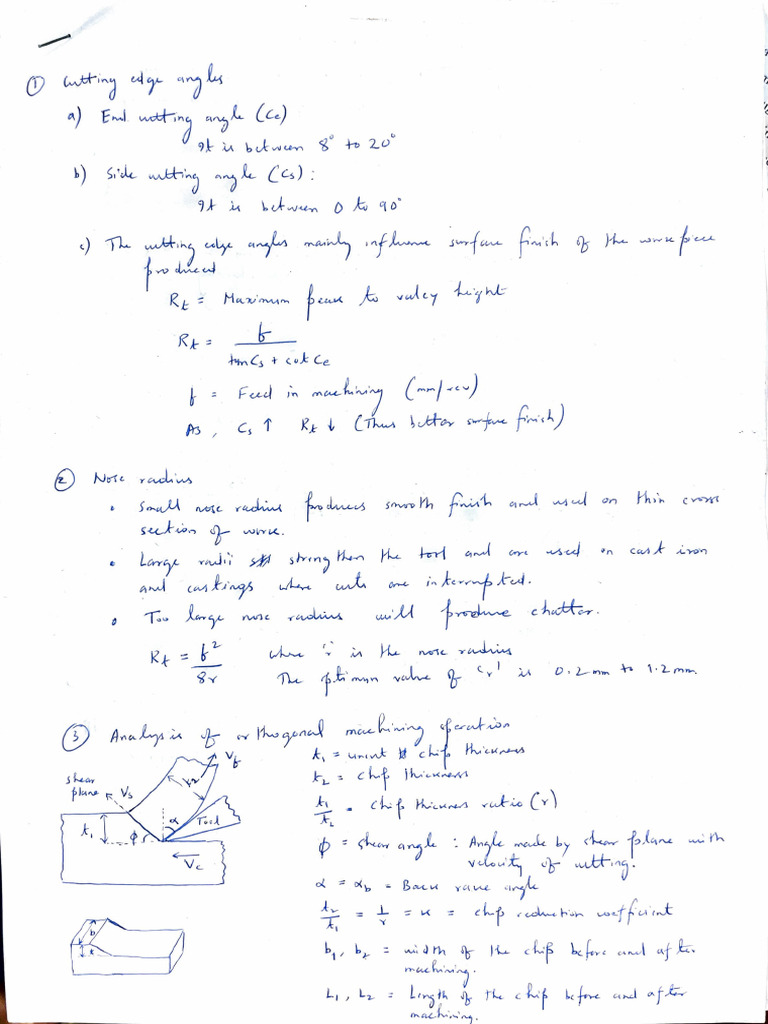 ① Cutting edge angles
a) End cutting angle (Ce)
It is between 8° to 20°
b) Side cutting angle (Cs) :
It is between 0 to 90°
c) The cutting edge angles mainly influence surface finish of the workpiece
produced
Rt = Maximum peak to valley height
Rt = f / (tan Cs + cot Ce)
f = Feed in machining (mm/rev)
As, Cs ↑ Rt ↓ (Thus better surface finish)
② Nose radius
• Small nose radius produces smooth finish and used on thin cross
section of work.
• Large radii strengthen the tool and are used on cast iron
and castings where cuts are interrupted.
• Too large nose radius will produce chatter.
Rt = f² / 8r where 'r' is the nose radius
The optimum value of 'r' is 0.2mm to 1.2mm.
③ Analysis of orthogonal machining operation
shear
plane
Vs
t2
Vf
t1
φ
α
Tool
Vc
b
t
t1 = uncut chip thickness
t2 = chip thickness
t1/t2 = chip thickness ratio (r)
φ = shear angle : Angle made by shear plane with
velocity of cutting.
α = αb = Back rake angle
t2/t1 = 1/r = k = chip reduction coefficient
b1, b2 = width of the chip before and after
machining.
L1, L2 = Length of the chip before and after
machining.